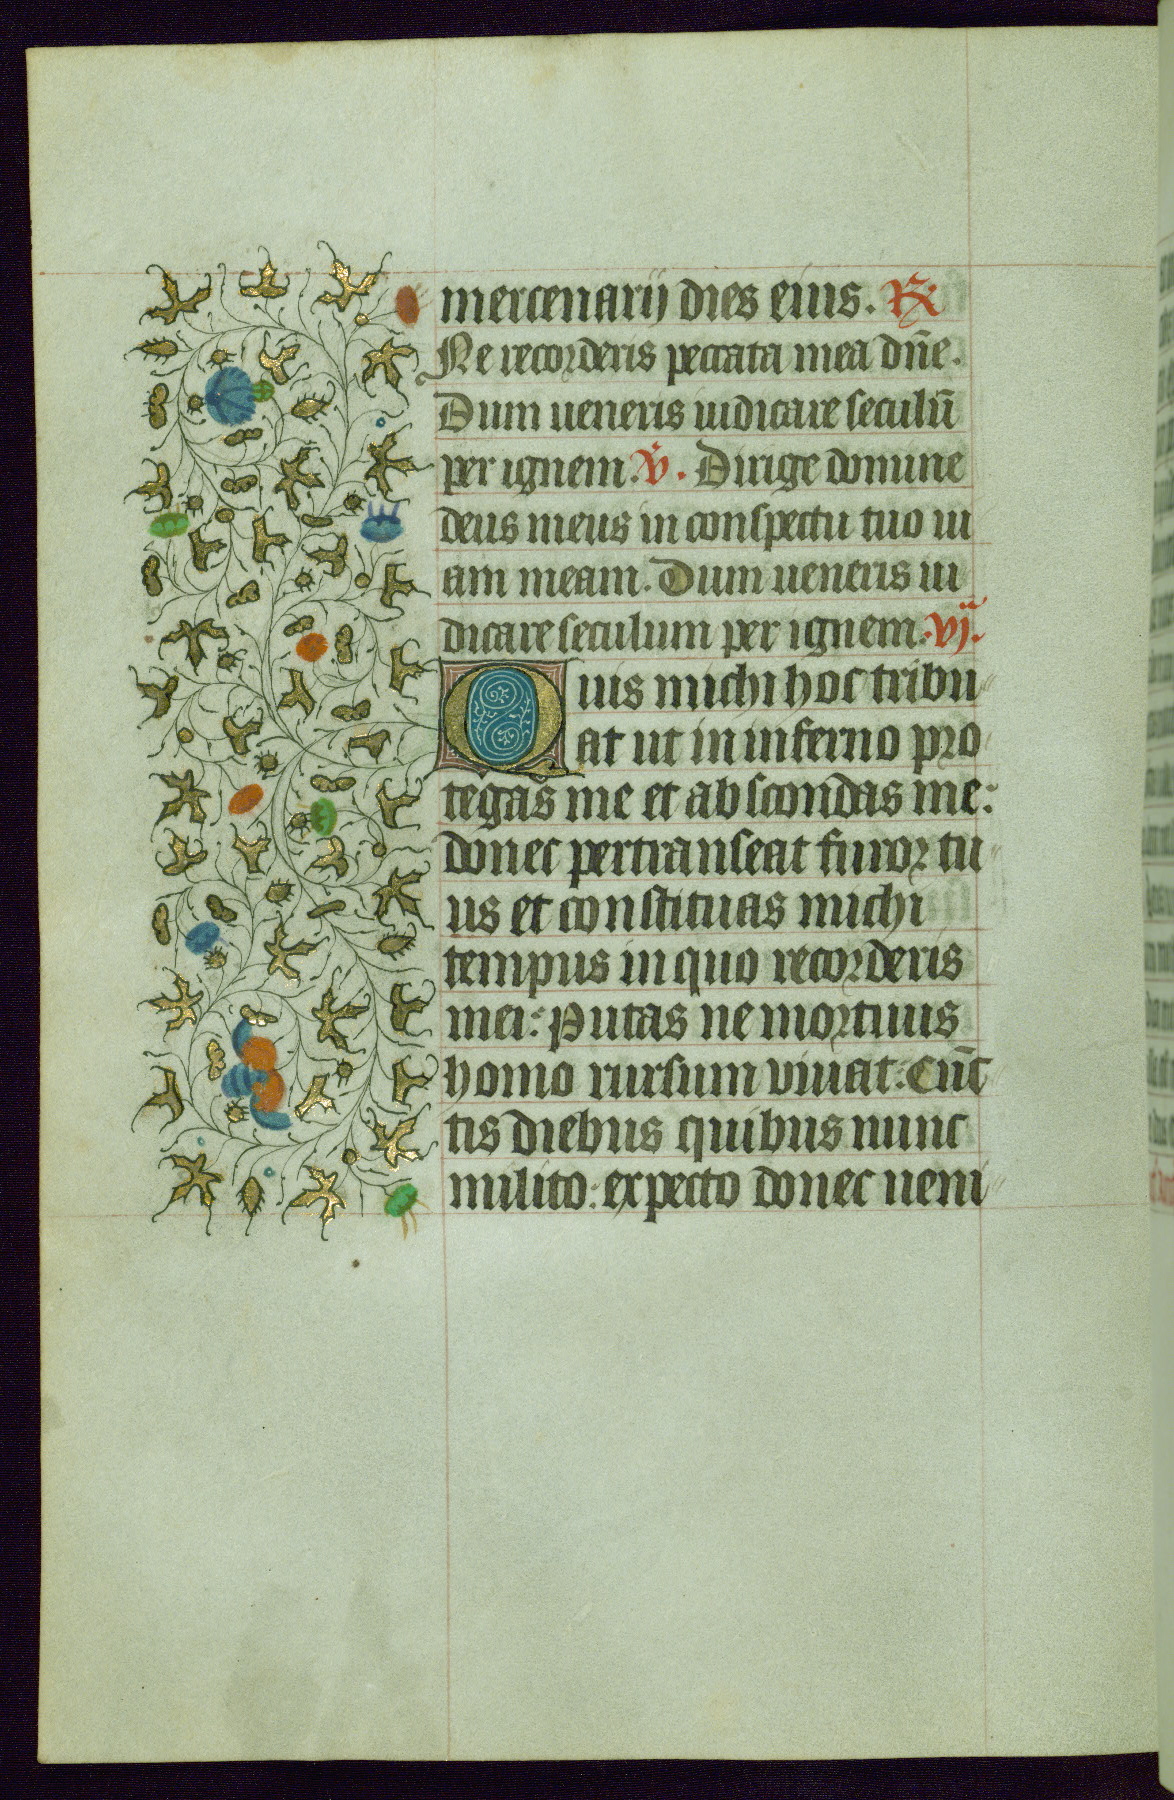 mercenarij dies eius. ℟
Ne recorderis peccata mea dn̄e.
Dum ueneris iudicare seculū
per ignem. ℣. Dirige domine
deus meus in conspectu tuo ui
am meam. Dum ueneris iu
dicare seculum per ignem. vij.
Quis michi hoc tribu
at ut in inferno pro
tegas me et abscondas me:
donec pertranseat furor tu
us et constituas michi
tempus in quo recorderis
mei: Putas ne mortuus
homo rursum viuat: Cūc
tis diebus quibus nunc
milito: expecto donec ueni